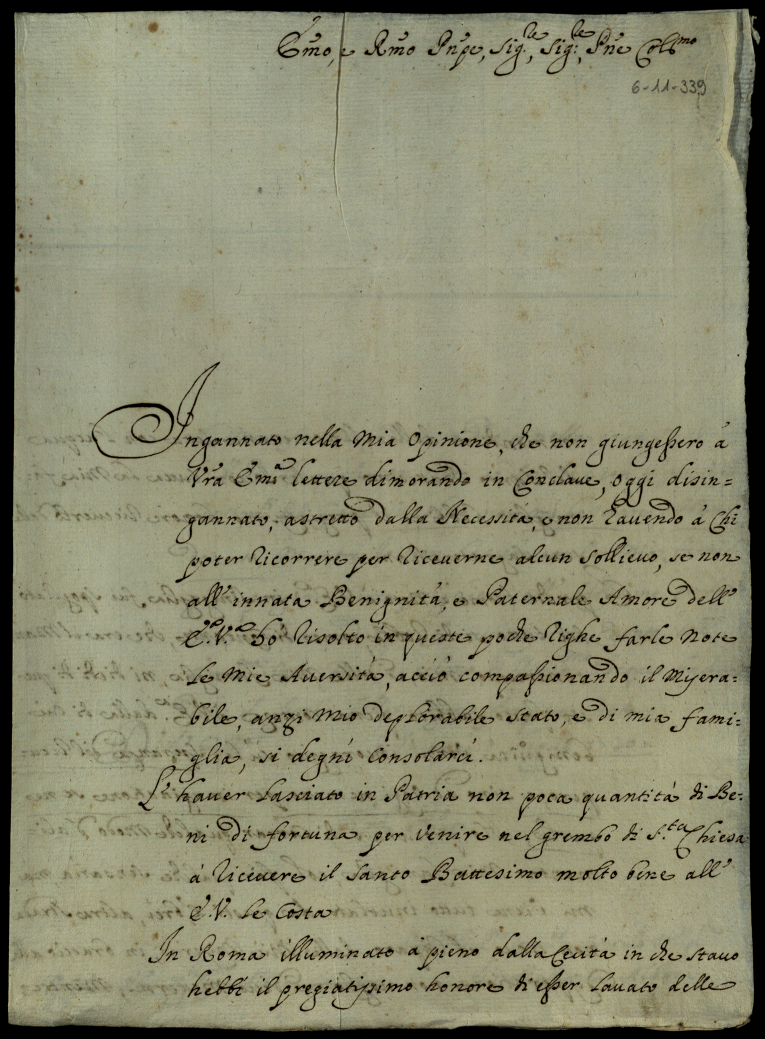 Em̃o, e Rm̃o Pñpe, Sig.re, Sig.re, Pñe Col.mo
6-11-339
Ingannato nella Mia Opinione, che non giungessero à
Vr̃a Em̃a lettere dimorando in Conclave, oggi disin=
gannato, astretto dalla Necessità, e non havendo à Chi
poter ricorrere per riceverne alcun sollievo, se non
all' innata Benignità, e Paternale Amore dell'
E.V. hò risolto in queste poche righe farle note
le Mie Aversità, acciò compassionando il Misera=
bile, anzi Mio deplorabile stato, e di mia fami=
glia, si degni Consolarci.
L' haver lasciato in Patria non poca quantità di Be=
ni di fortuna per venire nel grembo di S.ta Chiesa
à ricevere il Santo Battesimo molto bene all'
E.V. le Costa
In Roma illuminato à pieno dalla Cecità in che stavo
hebbi il pregiatissimo honore di esser lavato delle